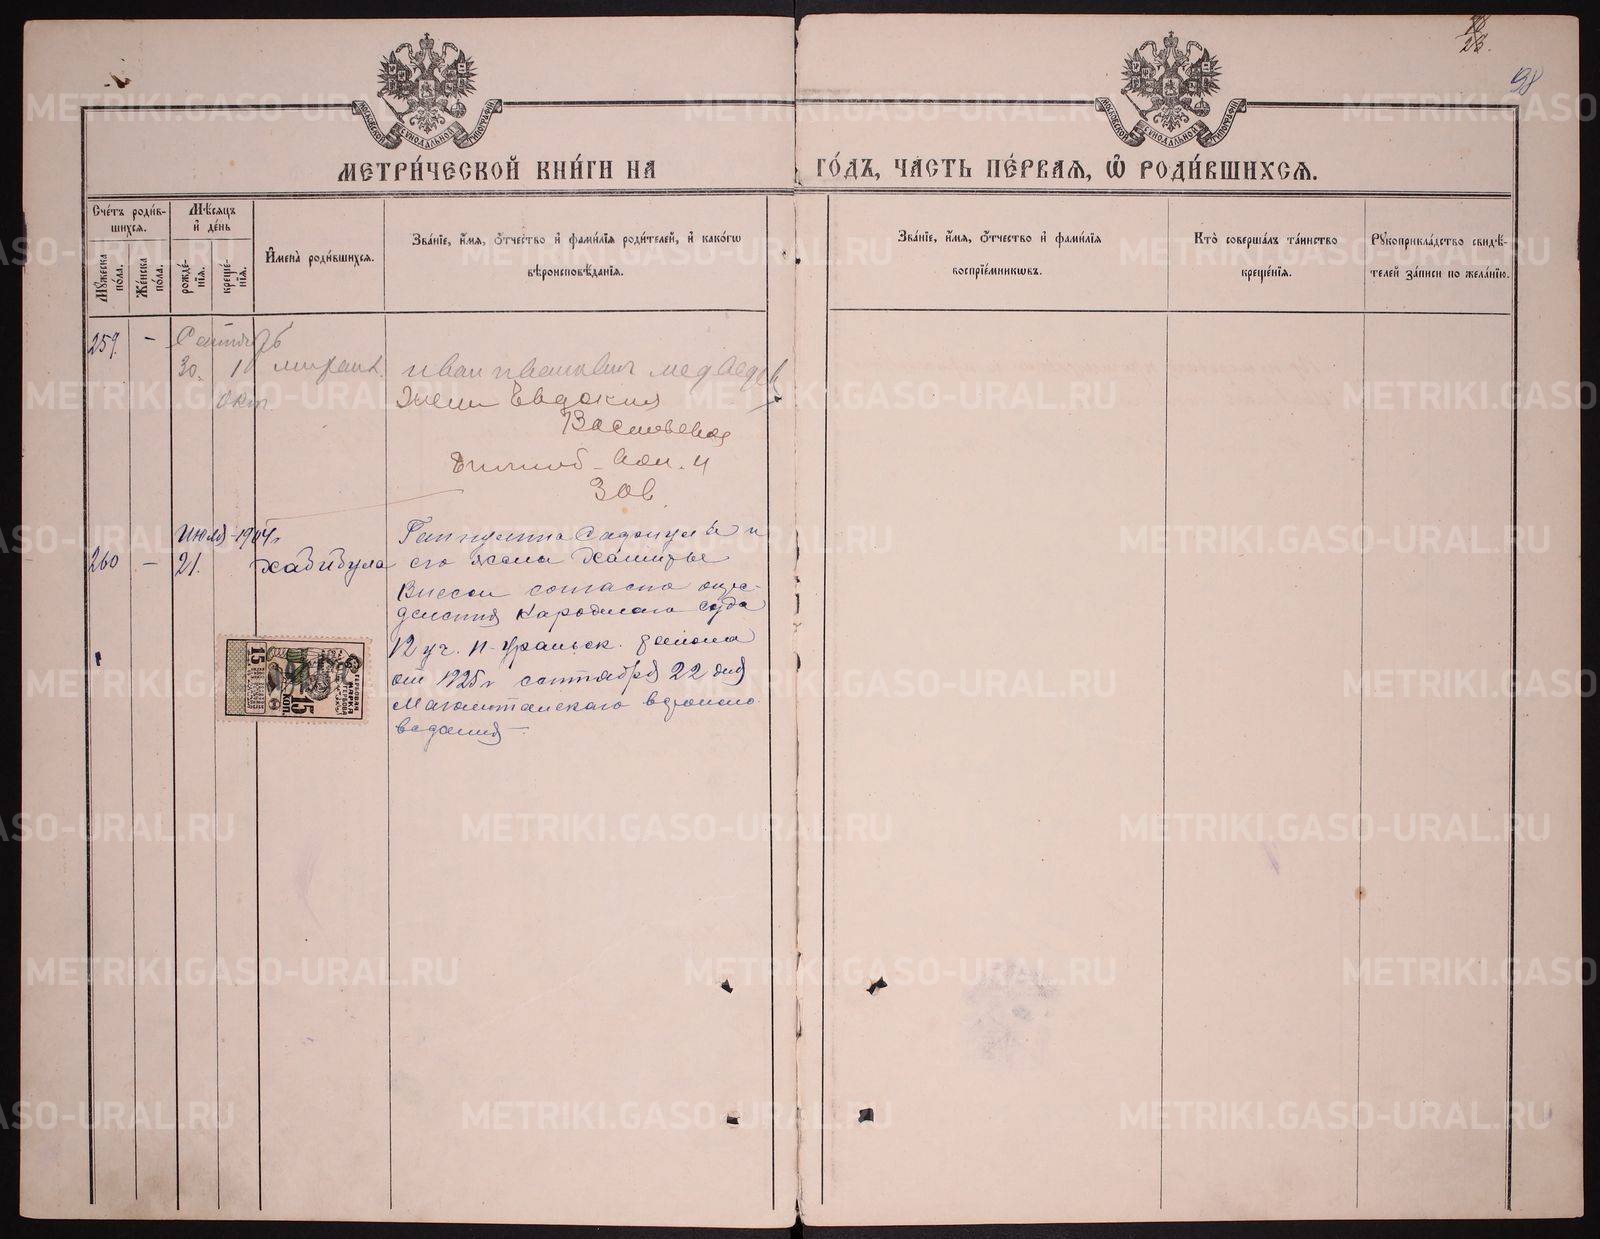 28.
98
МОСКОВСКОЙ СѴНОДАЛЬНОЙ ТИПОГРАФІИ
МОСКОВСКОЙ СѴНОДАЛЬНОЙ ТИПОГРАФІИ
МЕТРИ́ЧЕСКОЙ КНИ́ГИ НА ГО́ДЪ, ЧАСТЬ ПЕ́РВАЯ, Ѡ҆ РОДИ́ВШИХСЯ.
Сче́тъ роди́в-
шихся.
Мꙋ́жеска
по́ла.
Же́нска
по́ла.
Мѣ́сяцъ
и҆ де́нь
рожде́-
нїя.
креще́-
нїя.
И҆мена̀ роди́вшихся.
Зва́нїе, и҆́мя, ѻ҆́тчество и҆ фами́лїя роди́телей, и҆ како́гѡ
вѣроисповѣ́данїя.
Зва́нїе, и҆́мя, ѻ҆́тчество и҆ фами́лїя
воспрїе́мникѡвъ.
Кто̀ соверша́лъ та́инство
креще́нїя.
Рꙋкоприкла́дство свидѣ́-
телей за́писи по жела́нїю.
259. - Сентябь
30. 10 Михаил. Иван Иванович Медведев
окт. Жена Евдокия
Васильевна
Зов.
Июля 1904 г
260 - 21. Хабибула
его жена
Внесен согласно опре-
деления Народного суда
12 уч. Н-Уральск. района
от 1925 г сентября 22 дня
Магометанского вероиспо
ведания -
15
15
КОП.
ГЕРБОВАЯ
МАРКА
METRIKI.GASO-URAL.RU